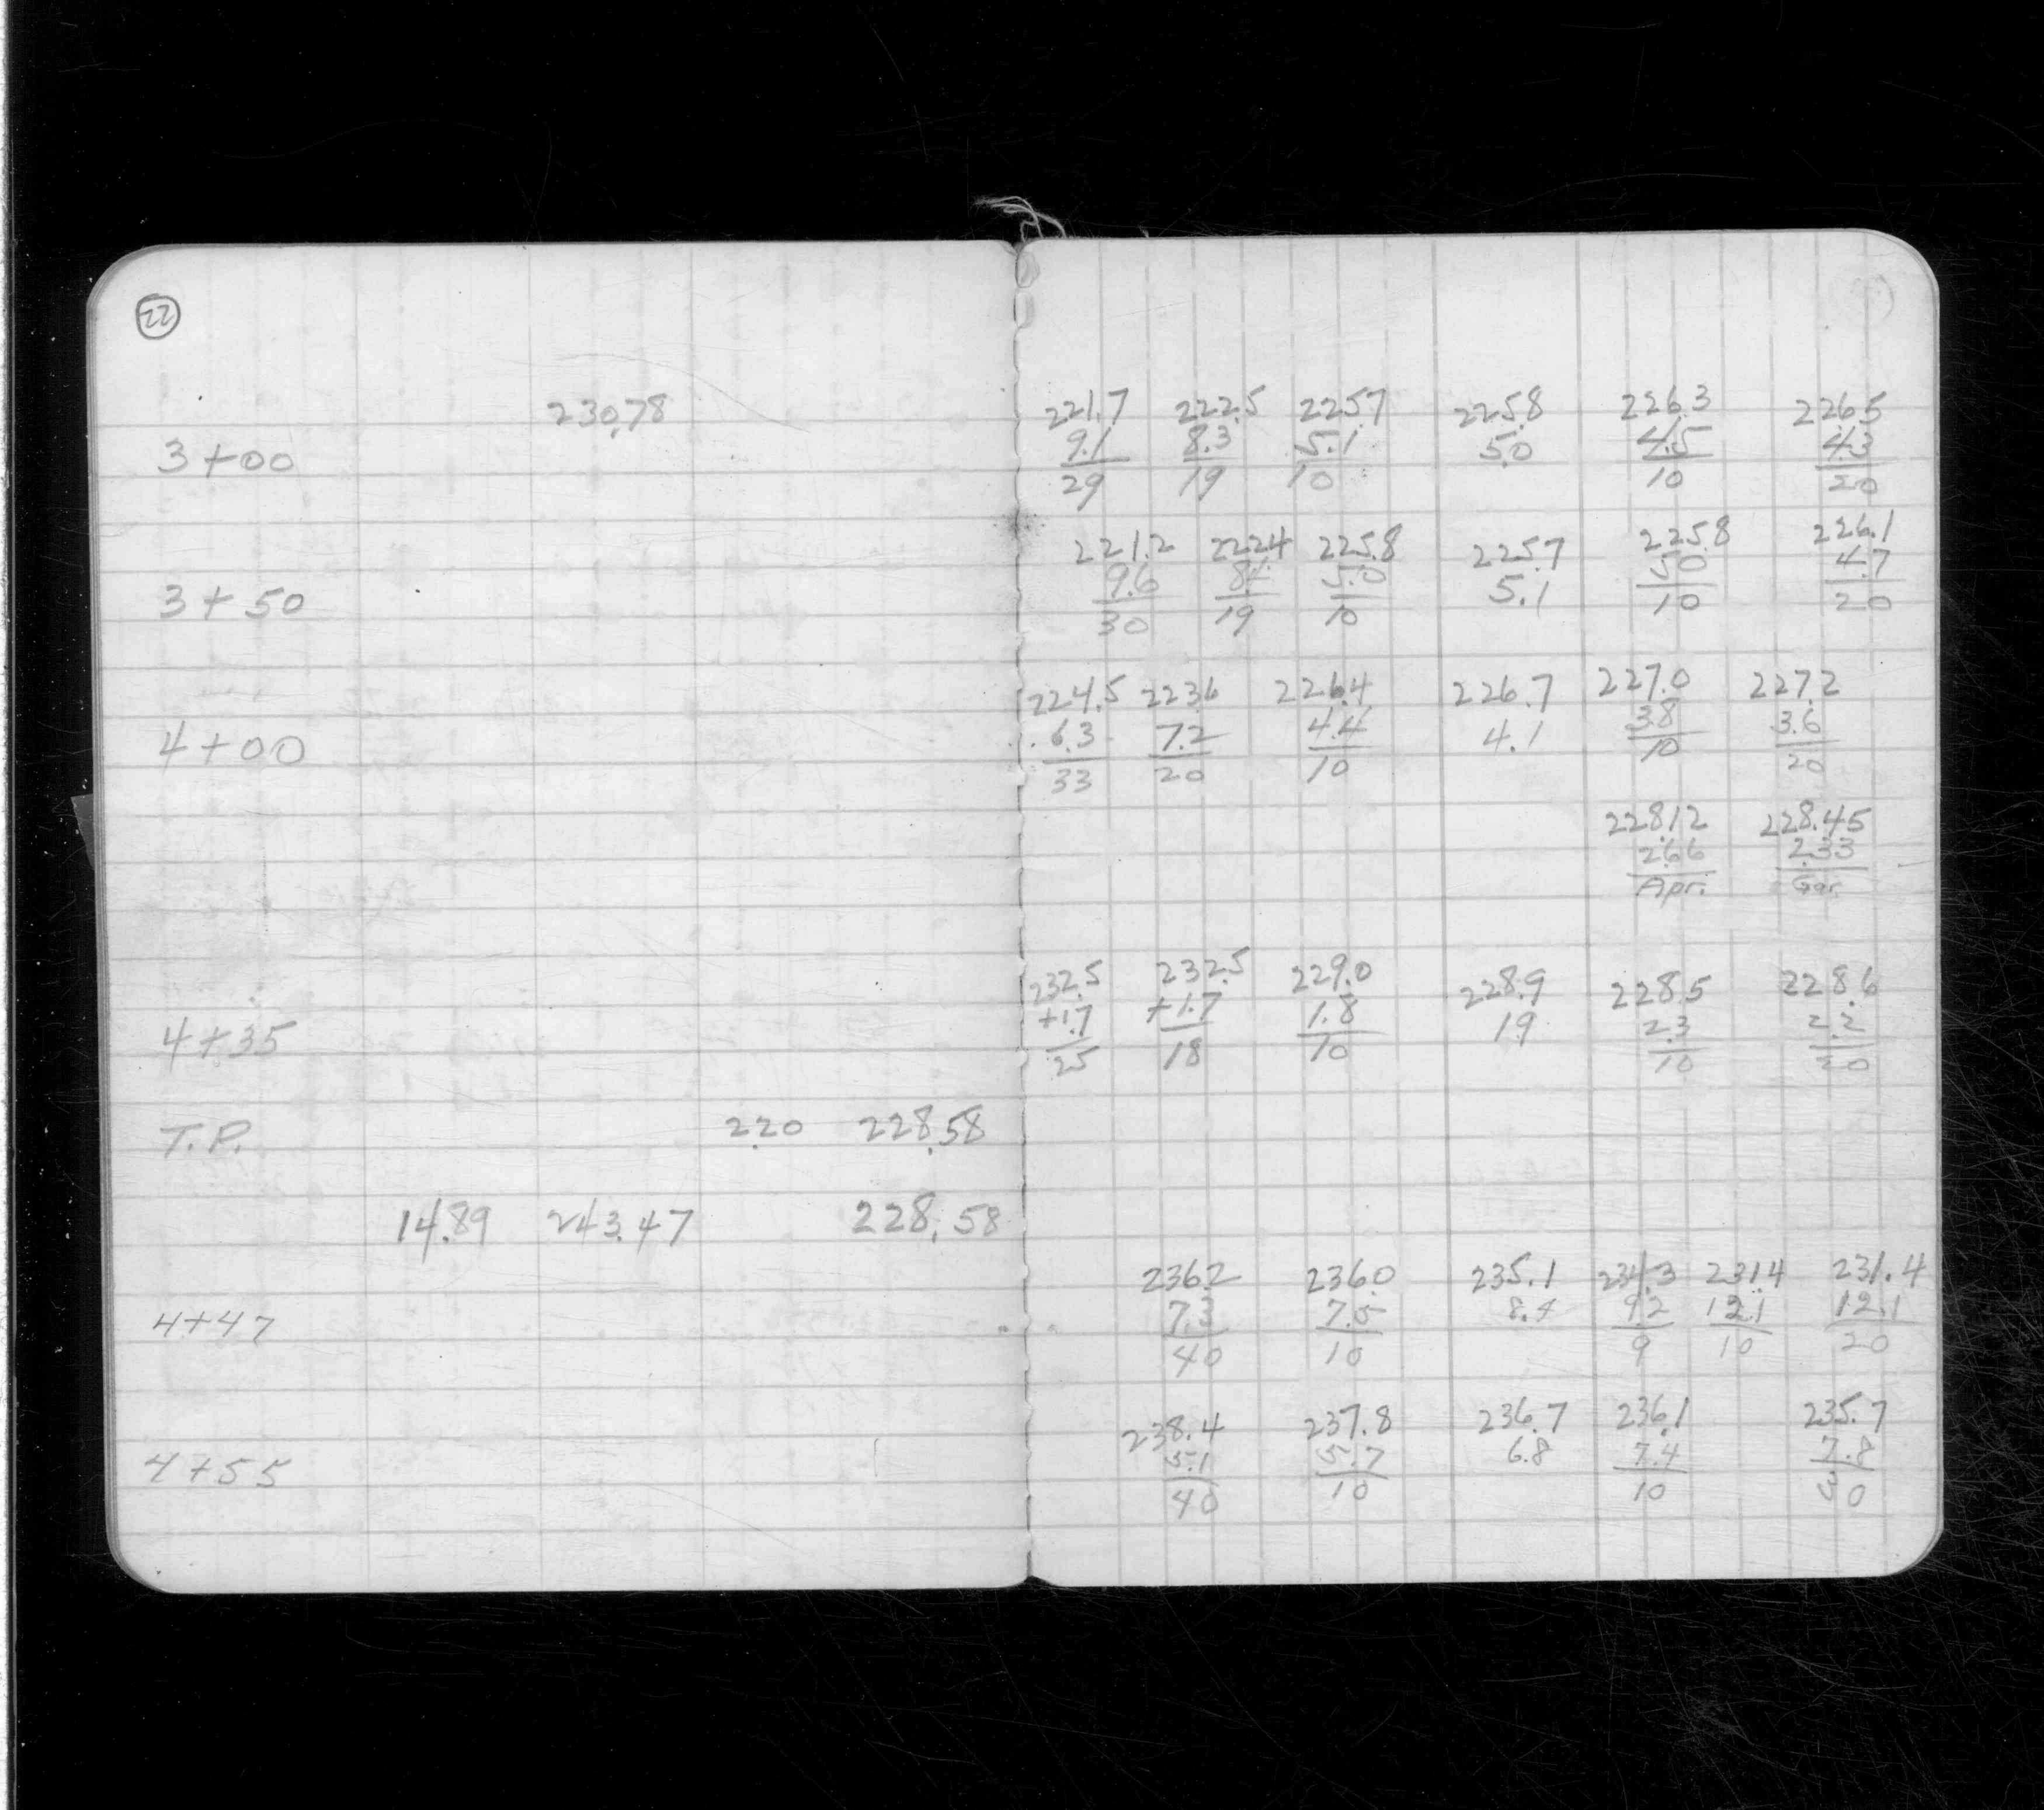 22
230.78
221.7 222.5 225.7 225.8 226.3 226.5
3+00 9.1 8.3 5.1 5.0 4.5 4.3
29 19 10 10 20
221.2 222.4 225.8 225.7 225.8 226.1
3+50 9.6 8.4 5.0 5.1 5.0 4.7
30 19 10 10 20
224.5 223.6 226.4 226.7 227.0 227.2
4+00 6.3 7.2 4.4 4.1 3.8 3.6
33 20 10 10 20
228.12 228.45
2.66 2.33
Apr. Gar.
232.5 232.5 229.0 228.9 228.5 228.6
4+35 +1.7 +1.7 1.8 1.9 2.3 2.2
25 18 10 10 20
T.P. 2.20 228.58
14.89 243.47 228.58
236.2 236.0 235.1 234.3 231.4 231.4
4+47 7.3 7.5 8.4 9.2 12.1 12.1
40 10 9 10 20
238.4 237.8 236.7 236.1 235.7
4+55 5.1 5.7 6.8 7.4 7.8
40 10 10 30